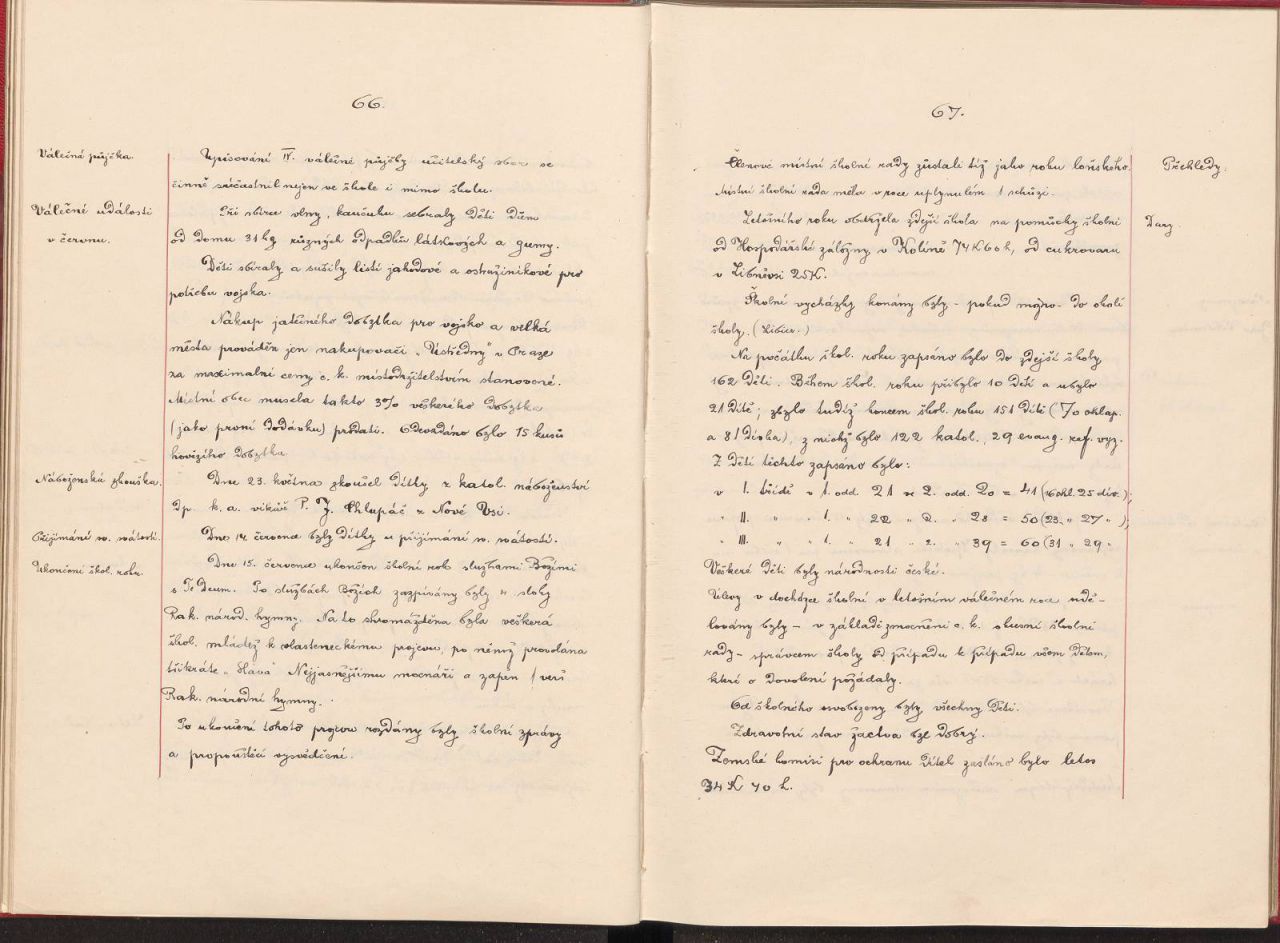 66.
Válečná půjčka.
Upisování IV. válečné půjčky učitelský sbor se
činně súčastnil nejen ve škole i mimo školu.
Válečné události
v červnu.
Při sbírce vlny, kaučuku sebraly děti dům
od domu 31 kg různých odpadků látkových a gumy.
Děti sbíraly a sušily listí jahodové a ostružiníkové pro
potřebu vojska.
Nákup jatečného dobytka pro vojsko a velká
města prováděn jen nakupovači „Ústředny" v Praze
za maximalní ceny c. k. místodržitelstvím stanovené.
Místní obec musela takto 3% veškerého dobytka
(jako první dodávku) prodati. Odevzdáno bylo 15 kusů
hovězího dobytka.
Náboženská zkouška.
Dne 23. května zkoušel dítky z katol. náboženství
dp. k. a. vikář P. J. Chlupáč z Nové Vsi.
Přijímání sv. svátostí.
Dne 14 července byly dítky u přijímání sv. svátostí.
Ukončení škol. roku.
Dne 15. července ukončen školní rok službami Božími
s Te Deum. Po službách Božích zazpívány byly sloky
Rak. národ. hymny. Na to shromážděna byla veškerá
škol. mládež k vlasteneckému projevu, po němž provolána
třikráte „Sláva" Nejjasnějšímu mocnáři a zapěn 1 verš
Rak. národní hymny.
Po ukončení tohoto projevu rozdány byly školní zprávy
a propouštěcí vysvědčení.
67.
Přehledy.
Členové místní školní rady zůstali tíž jako roku loňského.
Místní školní rada měla v roce uplynulém 1 schůzi.
Dary.
Letošního roku obdržela zdejší škola na pomůcky školní
od Hospodářské záložny v Kolíně 74 K 60 h, od cukrovaru
v Libněvsi 25 K.
Školní vycházky konány byly - pokud možno - do okolí
školy. (Libice.)
Na počátku škol. roku zapsáno bylo do zdejší školy
162 dětí. Během škol. roku přibylo 10 dětí a ubylo
21 dítě; zbylo tudíž koncem škol. roku 151 dítě (70 chlap.
a 81 dívka), z nichž bylo 122 katol., 29 evang. ref. vyz.
Z dětí těchto zapsáno bylo:
v I. třídě v 1. odd. 21 v 2. odd. 20 = 41 (16 chl. 25 dív.);
" II. " " 1. " 22 " 2. " 28 = 50 (23. " 27 " );
" III. " " 1. " 21 " 2. " 39 = 60 (31 " 29 "
Veškeré děti byly národnosti české.
Úlevy v docházce školní v letošním válečném roce udě-
lovány byly - v základě zmocnění c. k. okresní školní
rady - správcem školy od případu k případu všem dětem,
které o dovolení požádaly.
Od školného osvobozeny byly všechny děti.
Zdravotní stav žactva byl dobrý.
Zemské komisi pro ochranu dítek zasláno bylo letos
34 K 70 h.